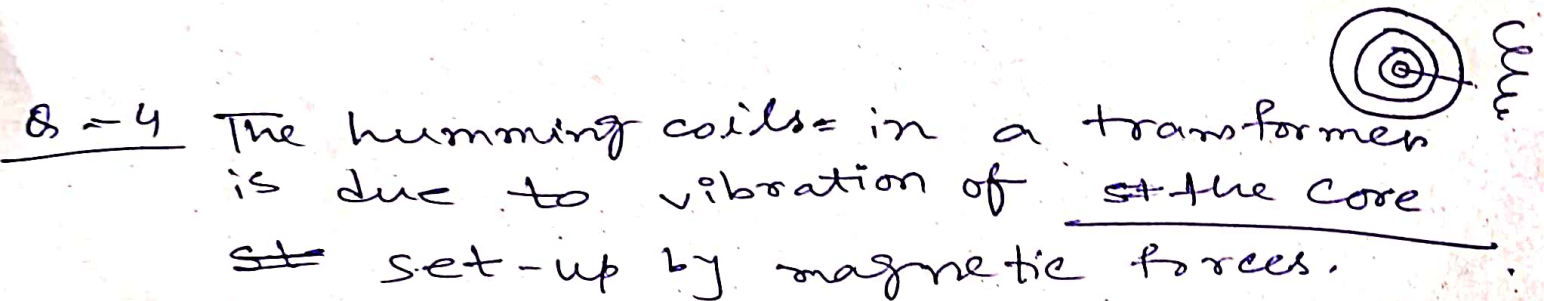 Q-4 The humming coils= in a transformer
is due to vibration of st the core
st set-up by magnetic forces.